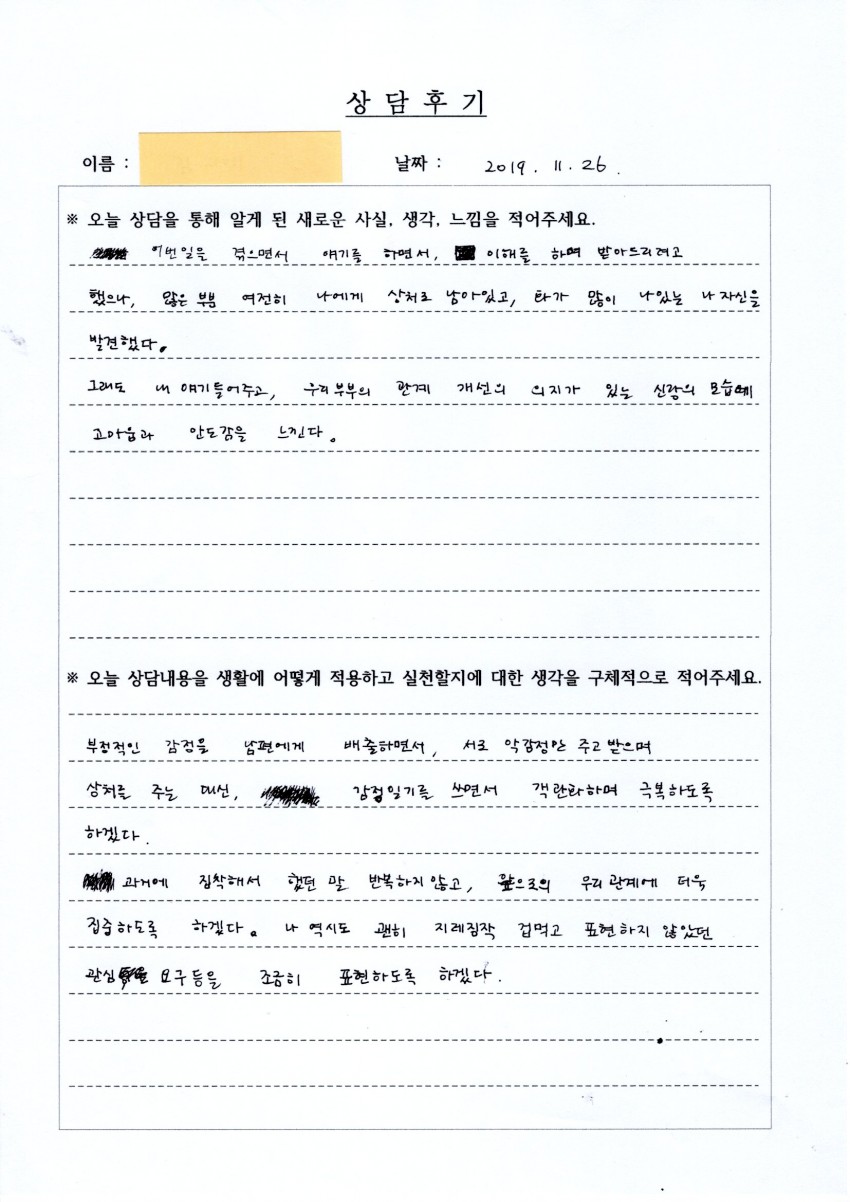 상 담 후 기
이름 :
날짜 : 2019. 11. 26.
※ 오늘 상담을 통해 알게 된 새로운 사실, 생각, 느낌을 적어주세요.
이번일을 겪으면서 얘기를 하면서, 이해를 하며 받아드리려고
했으나, 많은 부분 여전히 나에게 상처로 남아있고, 많이 나있는 나 자신을
발견했다.
그래도 내 얘기들어주고, 우리부부의 관계 개선의 의지가 있는 신랑의 모습에
고마움과 안도감을 느낀다.
※ 오늘 상담내용을 생활에 어떻게 적용하고 실천할지에 대한 생각을 구체적으로 적어주세요.
부정적인 감정을 남편에게 배출하면서, 서로 악감정만 주고받으며
상처를 주는 대신, 감정일기를 쓰면서 객관화하며 극복하도록
하겠다.
과거에 집착해서 했던 말 반복하지않고, 앞으로의 우리관계에 더욱
집중하도록 하겠다. 나 역시도 괜히 지레짐작 겁먹고 표현하지 않았던
관심 요구등을 조금히 표현하도록 하겠다.